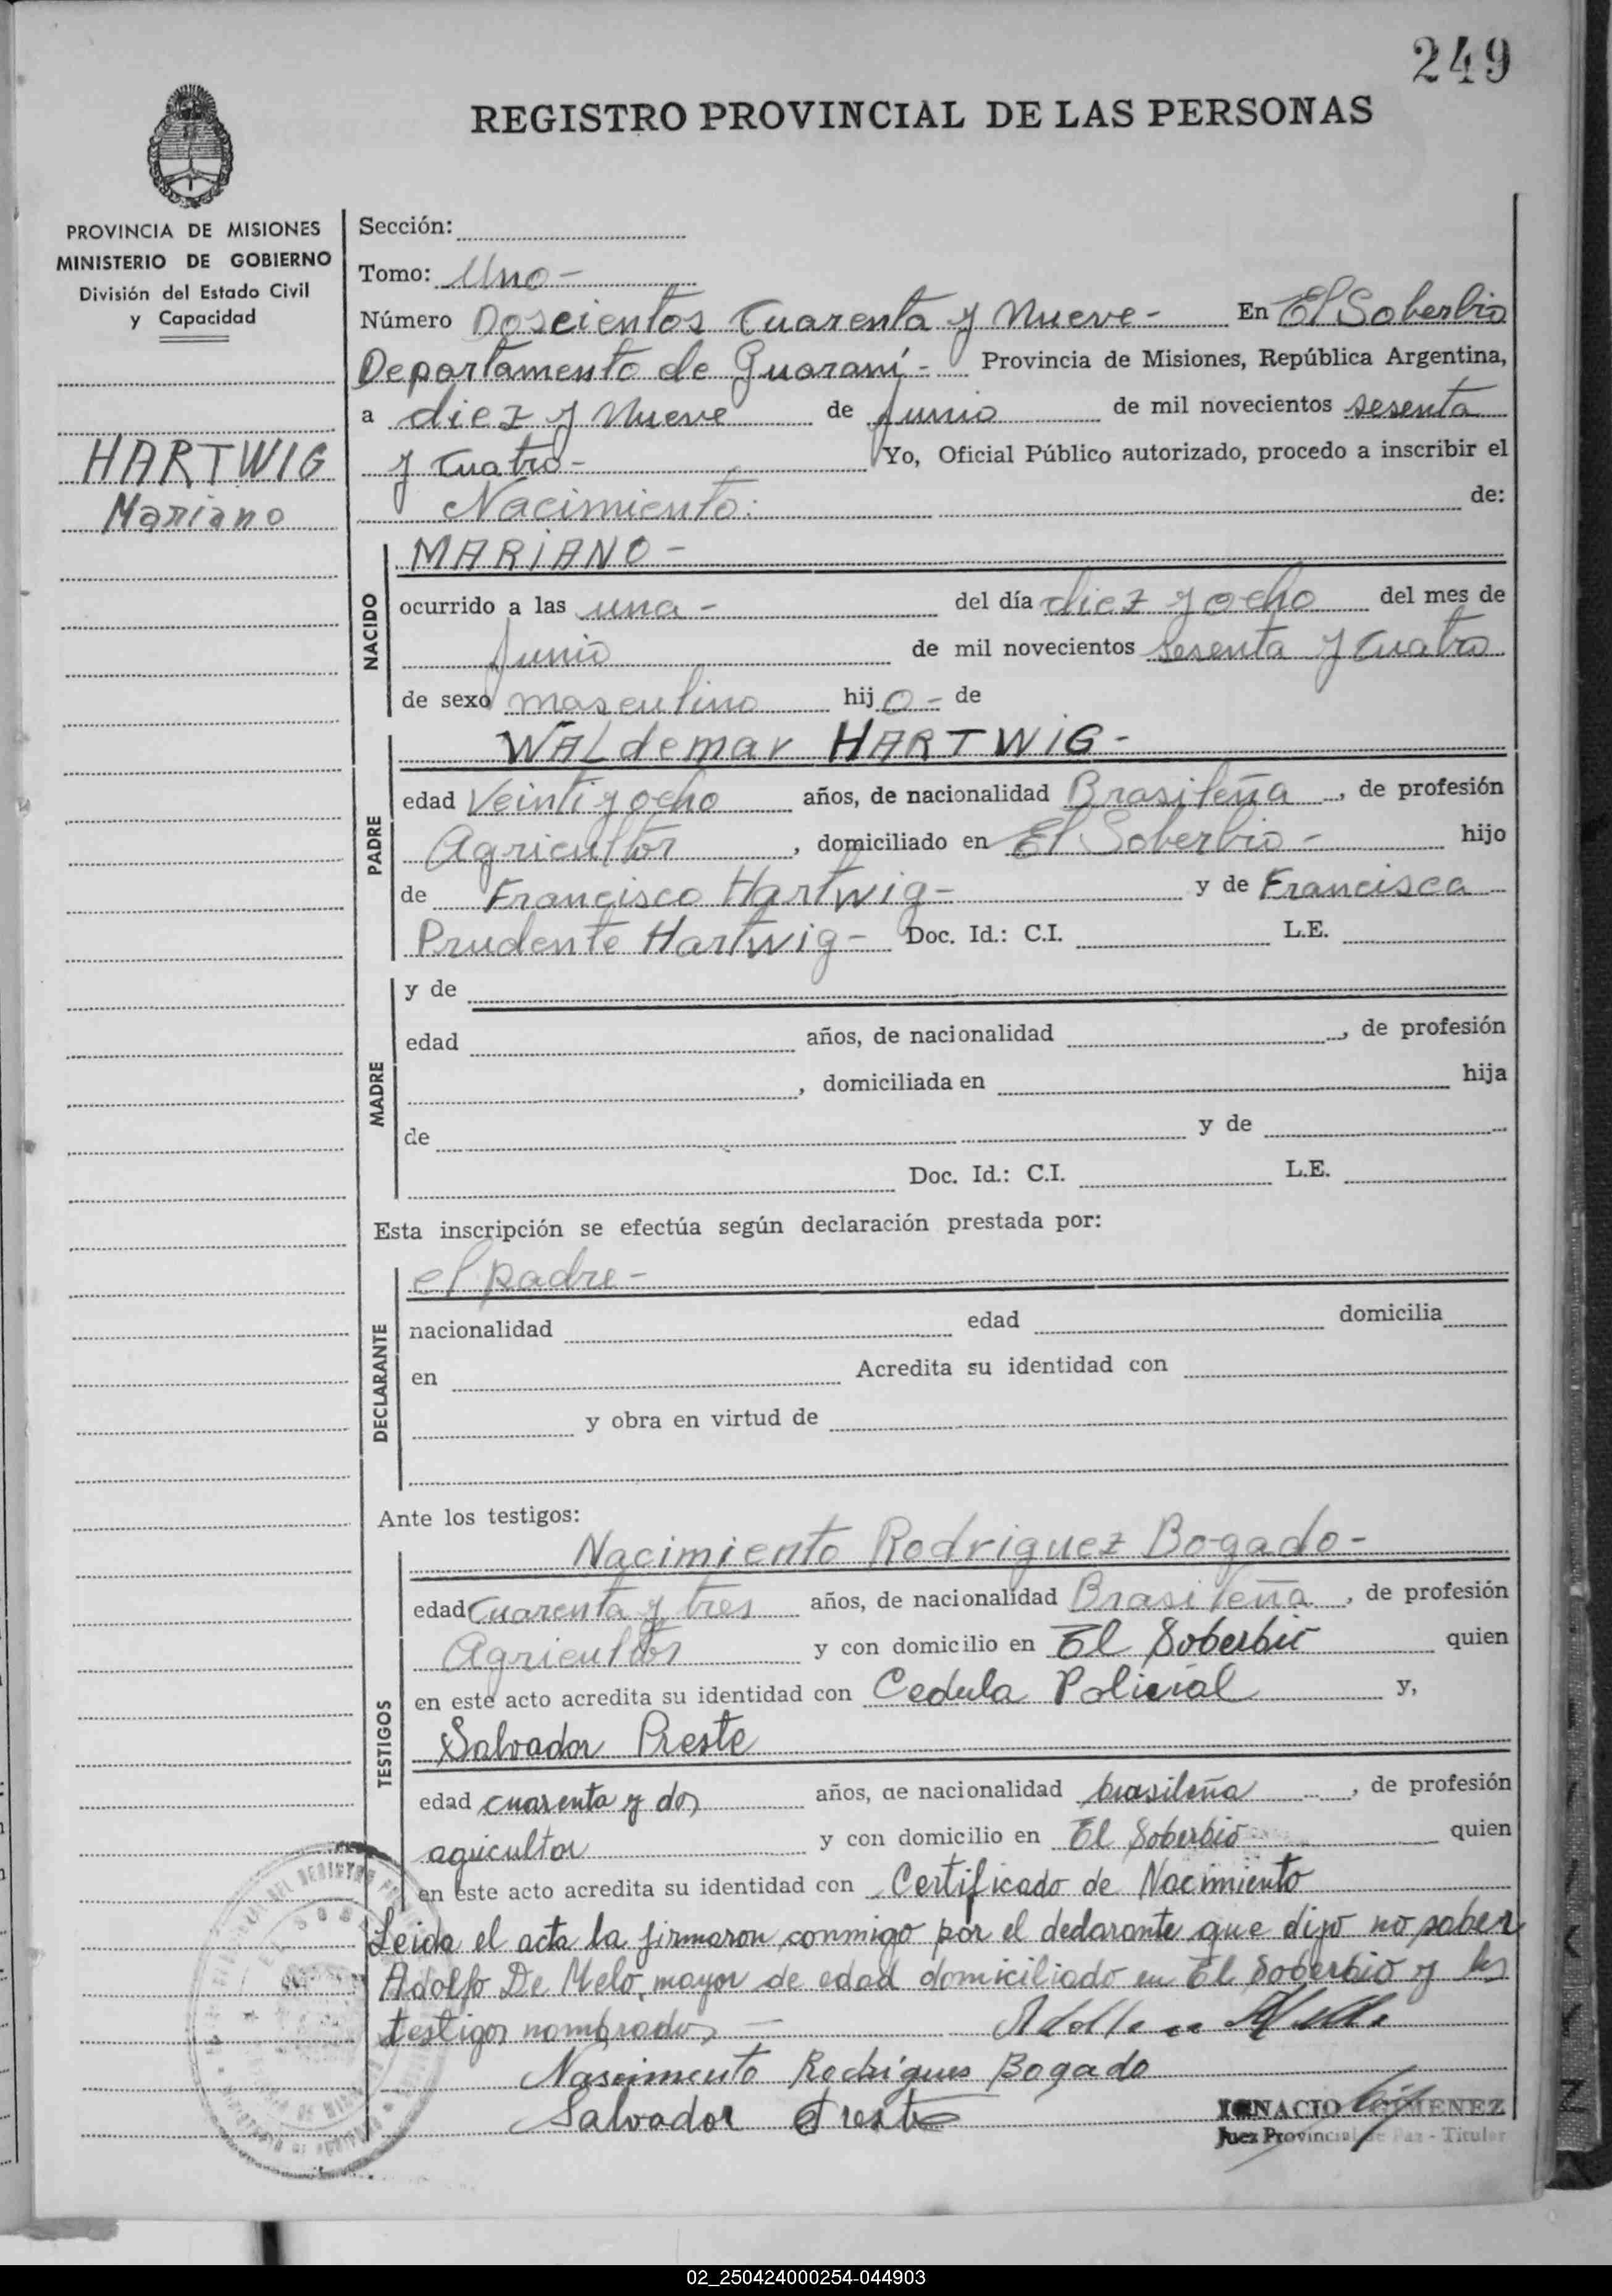 249
REGISTRO PROVINCIAL DE LAS PERSONAS
PROVINCIA DE MISIONES
MINISTERIO DE GOBIERNO
División del Estado Civil
y Capacidad
HARTWIG
Mariano
Sección:
Tomo: Uno-
Número Doscientos Cuarenta y Nueve- En El Soberbio
Departamento de Guaraní- Provincia de Misiones, República Argentina,
a diez y Nueve de Junio de mil novecientos sesenta
y Cuatro- Yo, Oficial Público autorizado, procedo a inscribir el
Nacimiento: de:
NACIDO
MARIANO-
ocurrido a las una- del día diez y ocho del mes de
Junio de mil novecientos Sesenta y Cuatro
de sexo masculino hijo- de
PADRE
WALdemar HARTWIG-
edad Veinti y ocho años, de nacionalidad Brasileña, de profesión
Agricultor, domiciliado en El Soberbio- hijo
de Francisco Hartwig- y de Francisca
Prudente Hartwig- Doc. Id.: C.I. L.E.
MADRE
y de
edad años, de nacionalidad , de profesión
, domiciliada en hija
de y de
Doc. Id.: C.I. L.E.
Esta inscripción se efectúa según declaración prestada por:
DECLARANTE
el padre-
nacionalidad edad domicilia
en Acredita su identidad con
y obra en virtud de
Ante los testigos:
TESTIGOS
Nacimiento Rodriguez Bogado-
edad Cuarenta y tres años, de nacionalidad Brasileña, de profesión
Agricultor y con domicilio en El Soberbio quien
en este acto acredita su identidad con Cedula Policial y,
Salvador Preste
edad cuarenta y dos años, de nacionalidad brasileña, de profesión
agricultor y con domicilio en El Soberbio quien
en este acto acredita su identidad con Certificado de Nacimiento
Leida el acta la firmaron conmigo por el declarante que dijo no saber
Adolfo De Melo, mayor de edad domiciliado en El Soberbio y los
testigos nombrados —
Nascimento Rodrigues Bogado
Salvador Preste
IGNACIO GIMENEZ
Juez Provincial de Paz - Titular
02_250424000254-044903